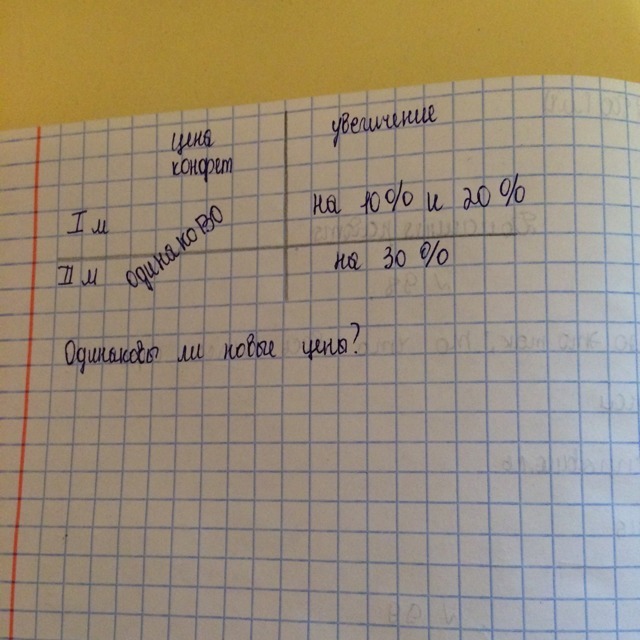 цена увеличение
конфет
I м на 10% и 20%
одинаково
II м на 30%
Одинаковы ли новые цены?